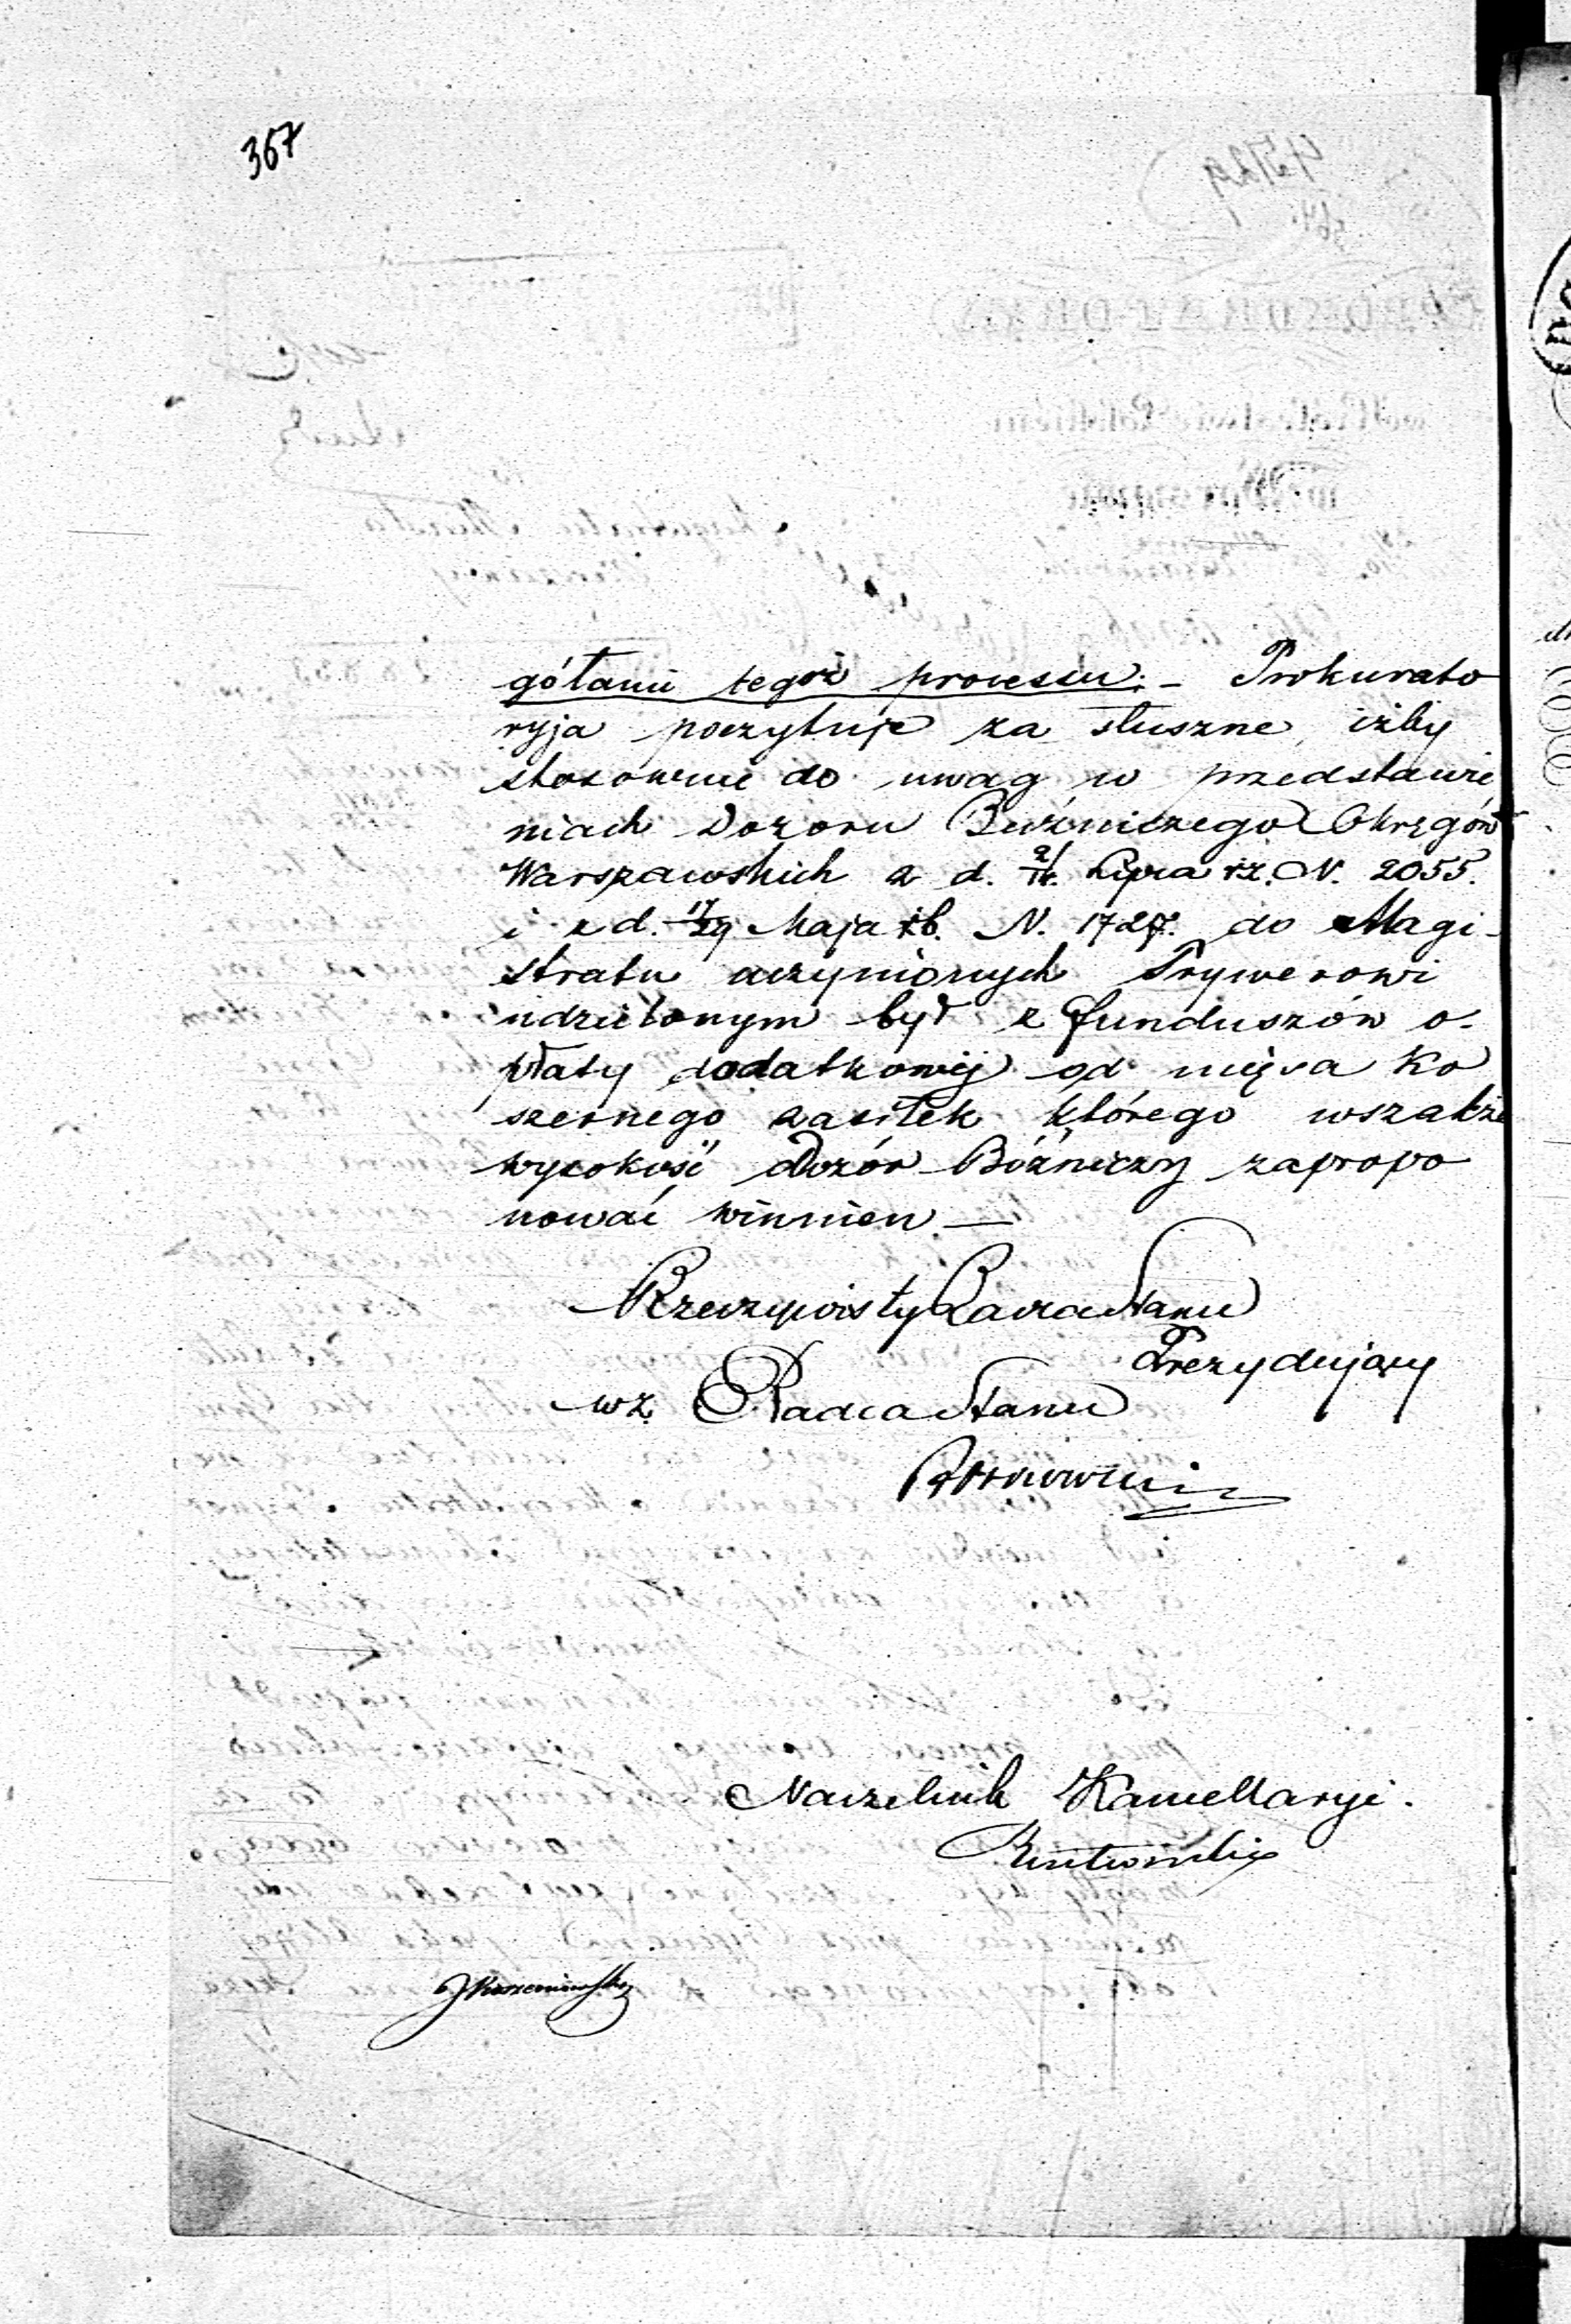 367
gółami tegoż processu. – Prokurato
ryja poczytuje za słuszne, iżby
stosownie do uwag w przedstawie
niach Dozoru Bużniczego Okręgów
Warszawskich z d. 2/14. Lipca rz. N. 2055.
i z d. 17/29 Maja rb. N. 1727. do Magi-
stratu uczynionych Prywerowi
udzielonym był z funduszów o-
płaty dodatkowej od mięsa Ko
szernego zasiłek którego wszakże
wysokość Dozór Bóżniczy zapropo
nować winnien —
Rzeczywisty Radca Stanu
Prezydujący
wz. Radca Stanu
Naczelnik Kancellaryi.